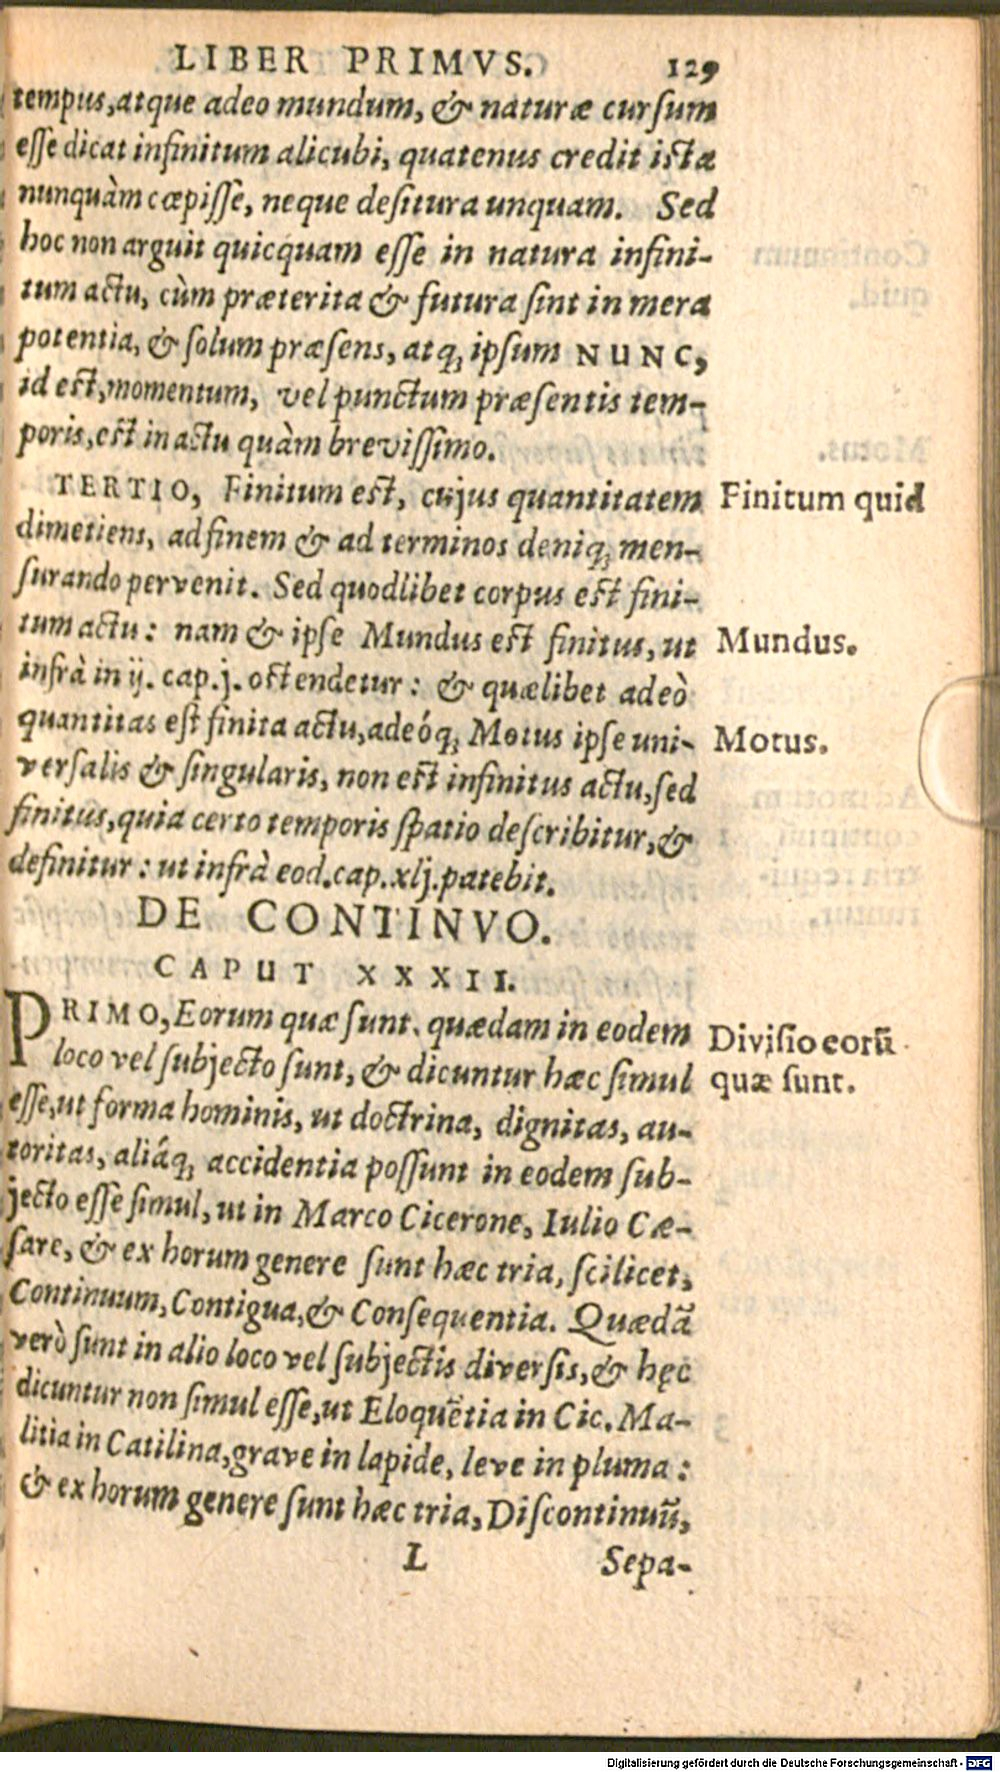 LIBER PRIMVS. 129
tempus, atque adeo mundum, & naturæ cursum
esse dicat infinitum alicubi, quatenus credit ista
nunquàm cœpisse, neque desitura unquam. Sed
hoc non arguit quicquam esse in natura infini-
tum actu, cùm præterita & futura sint in mera
potentia, & solum præsens, atq; ipsum NUNC,
id est, momentum, vel punctum præsentis tem-
poris, est in actu quàm brevissimo.
TERTIO, Finitum est, cujus quantitatem
Finitum quid
dimetiens, ad finem & ad terminos deniq; men-
surando pervenit. Sed quodlibet corpus est fini-
tum actu: nam & ipse Mundus est finitus, ut
Mundus.
infrà in ij. cap. j. ostendetur: & quælibet adeò
quantitas est finita actu, adeóq; Motus ipse uni-
Motus.
versalis & singularis, non est infinitus actu, sed
finitus, quia certo temporis spatio describitur, &
definitur: ut infrà eod. cap. xlj. patebit.
DE CONTINVO.
CAPUT XXXII.
PRIMO, Eorum quæ sunt, quædam in eodem
Divisio eorū
loco vel subjecto sunt, & dicuntur hæc simul
quæ sunt.
esse, ut forma hominis, ut doctrina, dignitas, au-
toritas, aliáq; accidentia possunt in eodem sub-
jecto esse simul, ut in Marco Cicerone, Iulio Cæ-
sare, & ex horum genere sunt hæc tria, scilicet,
Continuum, Contigua, & Consequentia. Quædā
verò sunt in alio loco vel subjectis diversis, & hęc
dicuntur non simul esse, ut Eloquētia in Cic. Ma-
litia in Catilina, grave in lapide, leve in pluma:
& ex horum genere sunt hæc tria, Discontinuū,
L Sepa-
Digitalisierung gefördert durch die Deutsche Forschungsgemeinschaft - DFG